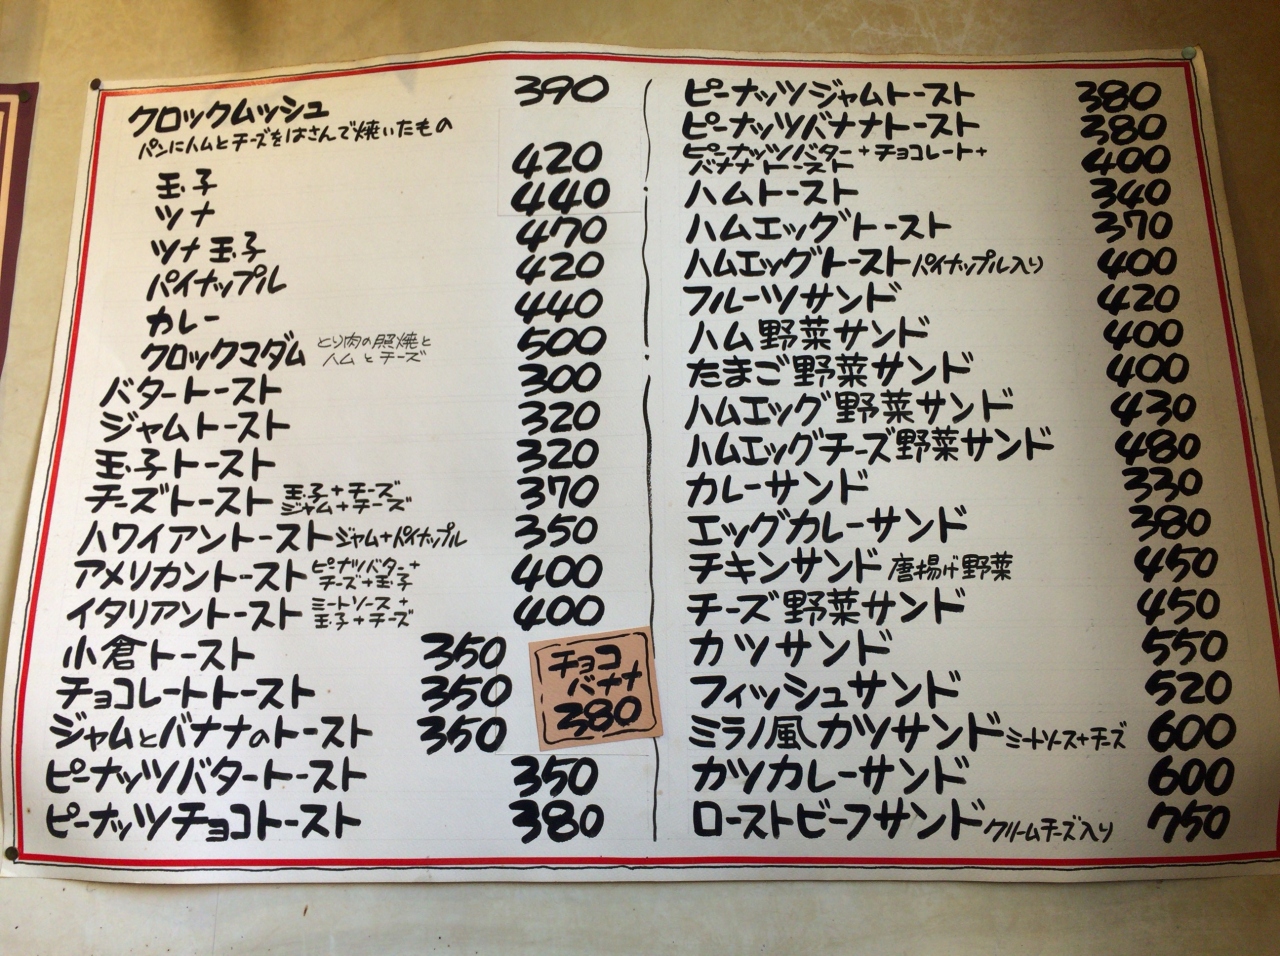 クロックムッシュ 390
パンにハムとチーズをはさんで焼いたもの
玉子 420
ツナ 440
ツナ玉子 470
パイナップル 420
カレー 440
クロックマダム とり肉の照焼と ハムとチーズ 500
バタートースト 300
ジャムトースト 320
玉子トースト 320
チーズトースト 玉子+チーズ ジャム+チーズ 370
ハワイアントースト ジャム+パイナップル 350
アメリカントースト ピーナツバター+ チーズ+玉子 400
イタリアントースト ミートソース+ 玉子+チーズ 400
小倉トースト 350
チョコレートトースト 350
ジャムとバナナのトースト 350
チョコ
バナナ
380
ピーナッツバタートースト 350
ピーナッツチョコトースト 380
ピーナッツジャムトースト 380
ピーナッツバナナトースト 380
ピーナッツバター+チョコレート+
バナナトースト 400
ハムトースト 340
ハムエッグトースト 370
ハムエッグトースト パイナップル入り 400
フルーツサンド 420
ハム野菜サンド 400
たまご野菜サンド 400
ハムエッグ野菜サンド 430
ハムエッグチーズ野菜サンド 480
カレーサンド 330
エッグカレーサンド 380
チキンサンド 唐揚げ野菜 450
チーズ野菜サンド 450
カツサンド 550
フィッシュサンド 520
ミラノ風カツサンド ミートソース+チーズ 600
カツカレーサンド 600
ローストビーフサンド クリームチーズ入り 750